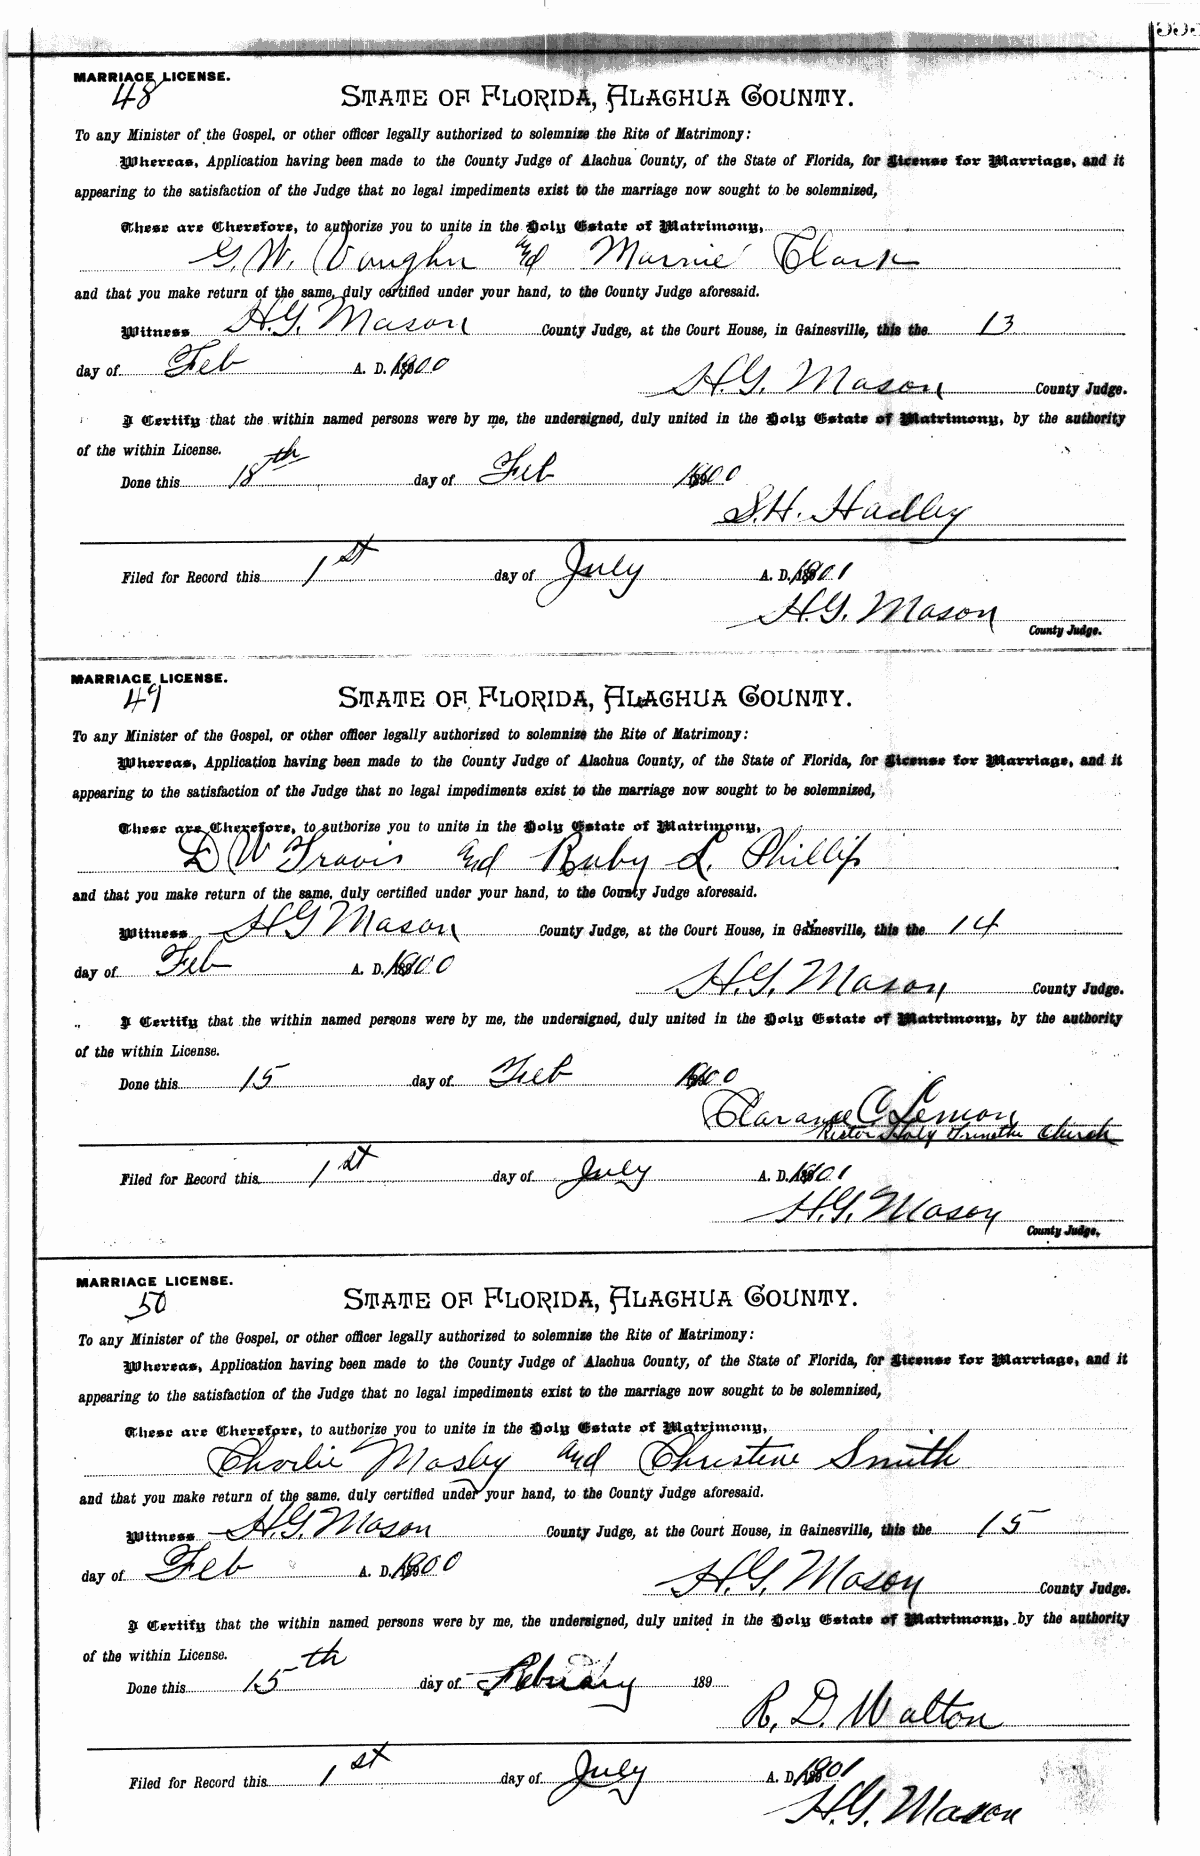 MARRIAGE LICENSE.
48
STATE OF FLORIDA, ALACHUA COUNTY.
To any Minister of the Gospel, or other officer legally authorized to solemnize the Rite of Matrimony:
Whereas, Application having been made to the County Judge of Alachua County, of the State of Florida, for License for Marriage, and it
appearing to the satisfaction of the Judge that no legal impediments exist to the marriage now sought to be solemnized,
These are Therefore, to authorize you to unite in the Holy Estate of Matrimony,
G. W. Vaughn and Mannie Clark
and that you make return of the same, duly certified under your hand, to the County Judge aforesaid.
Witness H. G. Mason County Judge, at the Court House, in Gainesville, this the 13
day of Feb A. D. 1900
H. G. Mason County Judge.
I Certify that the within named persons were by me, the undersigned, duly united in the Holy Estate of Matrimony, by the authority
of the within License.
Done this 18th day of Feb 1900
S. H. Hadley
Filed for Record this 1st day of July A. D. 1901
H. G. Mason
County Judge.
MARRIAGE LICENSE.
49
STATE OF FLORIDA, ALACHUA COUNTY.
To any Minister of the Gospel, or other officer legally authorized to solemnize the Rite of Matrimony:
Whereas, Application having been made to the County Judge of Alachua County, of the State of Florida, for License for Marriage, and it
appearing to the satisfaction of the Judge that no legal impediments exist to the marriage now sought to be solemnized,
These are Therefore, to authorize you to unite in the Holy Estate of Matrimony,
D W Travis and Ruby L. Phillips
and that you make return of the same, duly certified under your hand, to the County Judge aforesaid.
Witness H G Mason County Judge, at the Court House, in Gainesville, this the 14
day of Feb A. D. 1900
H. G. Mason County Judge.
I Certify that the within named persons were by me, the undersigned, duly united in the Holy Estate of Matrimony, by the authority
of the within License.
Done this 15 day of Feb 1900
Clarance C Lemon
Rector Holy Church
Filed for Record this 1st day of July A. D. 1901
H. G. Mason
County Judge.
MARRIAGE LICENSE.
50
STATE OF FLORIDA, ALACHUA COUNTY.
To any Minister of the Gospel, or other officer legally authorized to solemnize the Rite of Matrimony:
Whereas, Application having been made to the County Judge of Alachua County, of the State of Florida, for License for Marriage, and it
appearing to the satisfaction of the Judge that no legal impediments exist to the marriage now sought to be solemnized,
These are Therefore, to authorize you to unite in the Holy Estate of Matrimony,
Chorlie Mosby and Christine Smith
and that you make return of the same, duly certified under your hand, to the County Judge aforesaid.
Witness H. G. Mason County Judge, at the Court House, in Gainesville, this the 15
day of Feb A. D. 1900
H. G. Mason County Judge.
I Certify that the within named persons were by me, the undersigned, duly united in the Holy Estate of Matrimony, by the authority
of the within License.
Done this 15th day of 189
R. D. Walton
Filed for Record this 1st day of July A. D. 1901
H. G. Mason